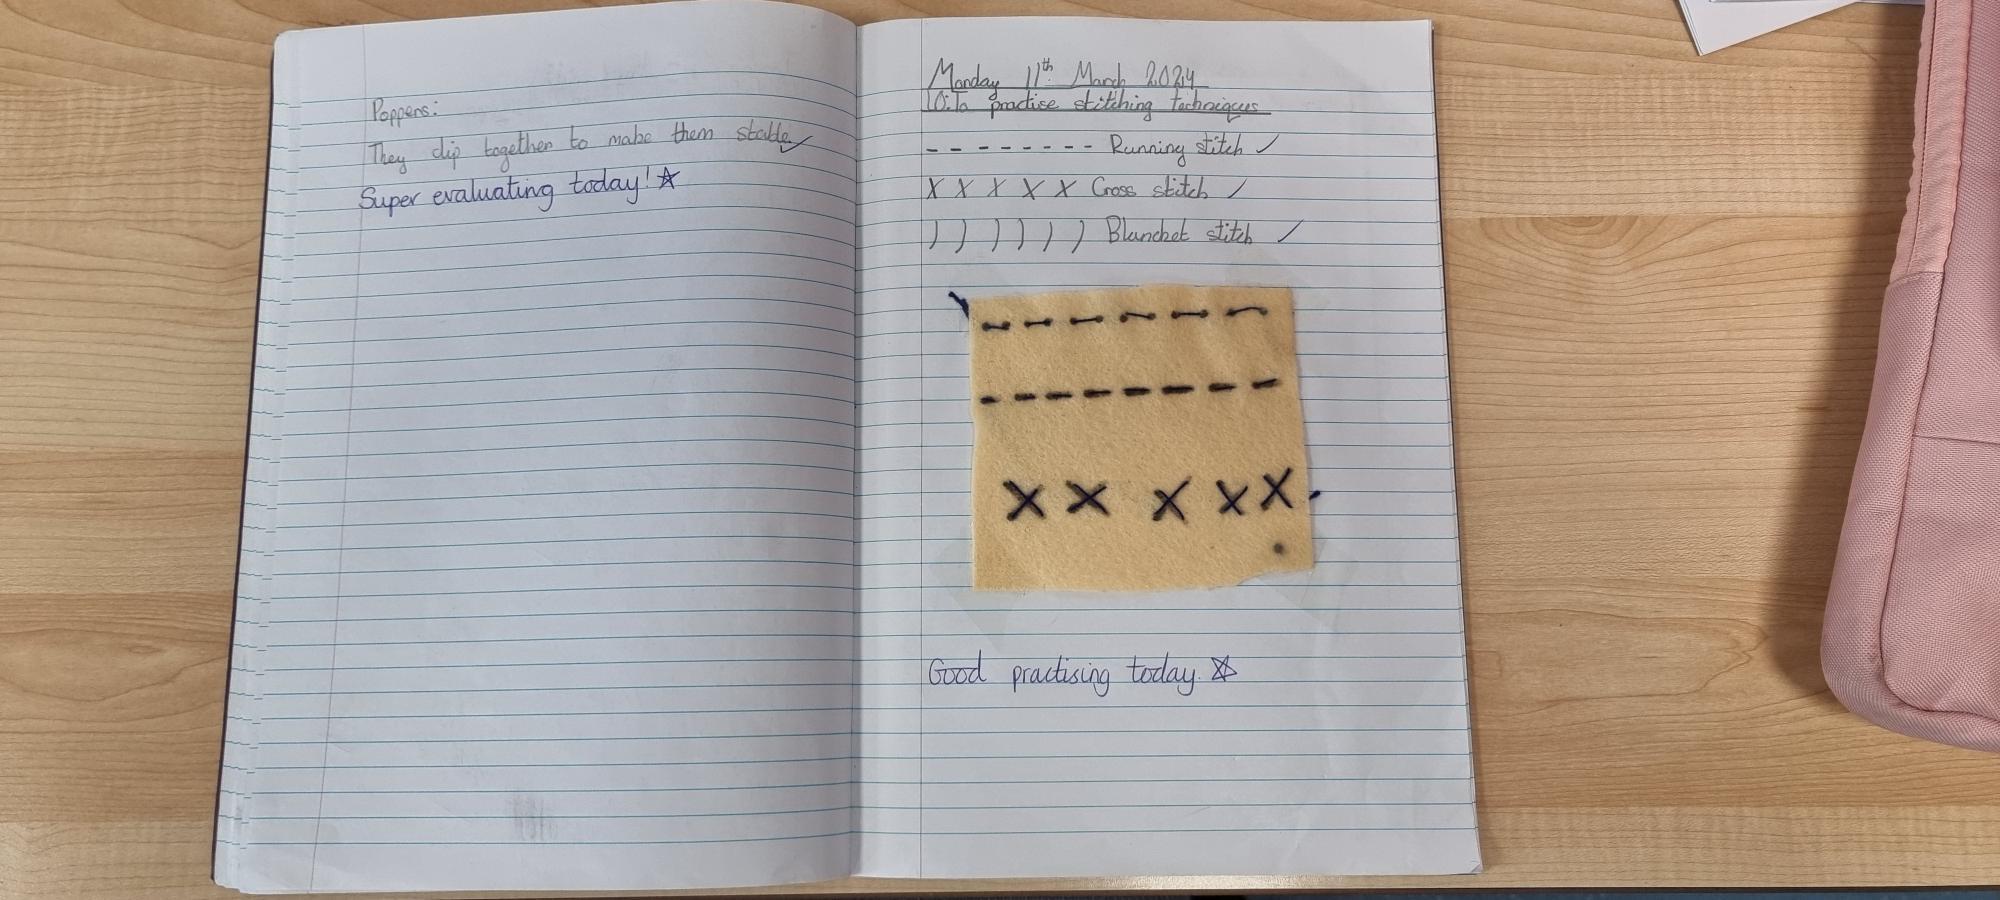 Poppers:
They clip together to make them stable.
Super evaluating today!
Monday 11th March 2024
LO: To practise stitching techniques
Running stitch
Cross stitch
Blancket stitch
Good practising today.